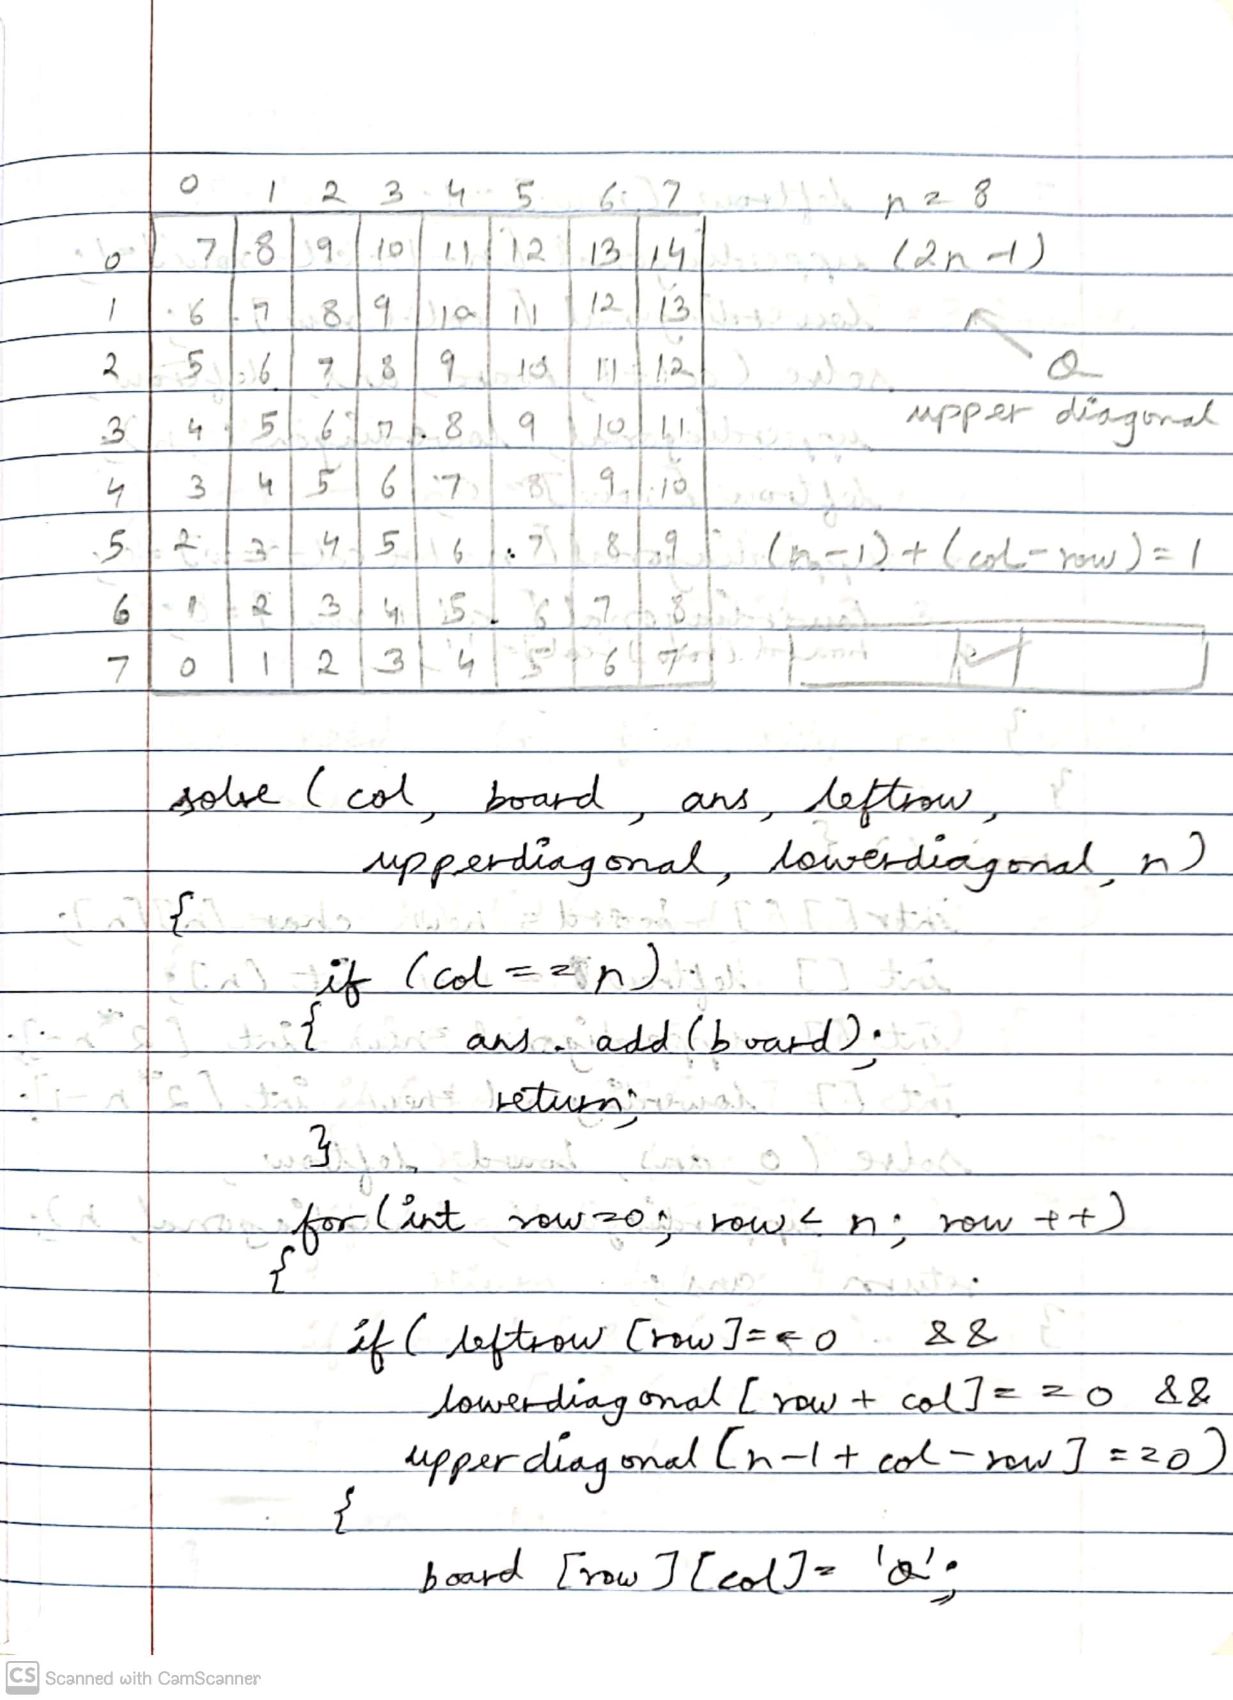 0 1 2 3 4 5 6 7 n = 8
0 7 8 9 10 11 12 13 14 (2n-1)
1 6 7 8 9 10 11 12 13
2 5 6 7 8 9 10 11 12 Q
upper diagonal
3 4 5 6 7 8 9 10 11
4 3 4 5 6 7 8 9 10
5 2 3 4 5 6 7 8 9 (n-1) + (col-row) = 1
6 1 2 3 4 5 6 7 8
7 0 1 2 3 4 5 6 7
solve ( col, board, ans, leftrow,
upperdiagonal, lowerdiagonal, n)
{
if (col == n)
{ ans. add (board);
return;
}
for (int row=0; row < n; row ++)
{
if ( leftrow [row] == 0 &&
lowerdiagonal [row + col] == 0 &&
upperdiagonal [n-1+ col - row] == 0)
{
board [row] [col] = 'Q';
CS Scanned with CamScanner